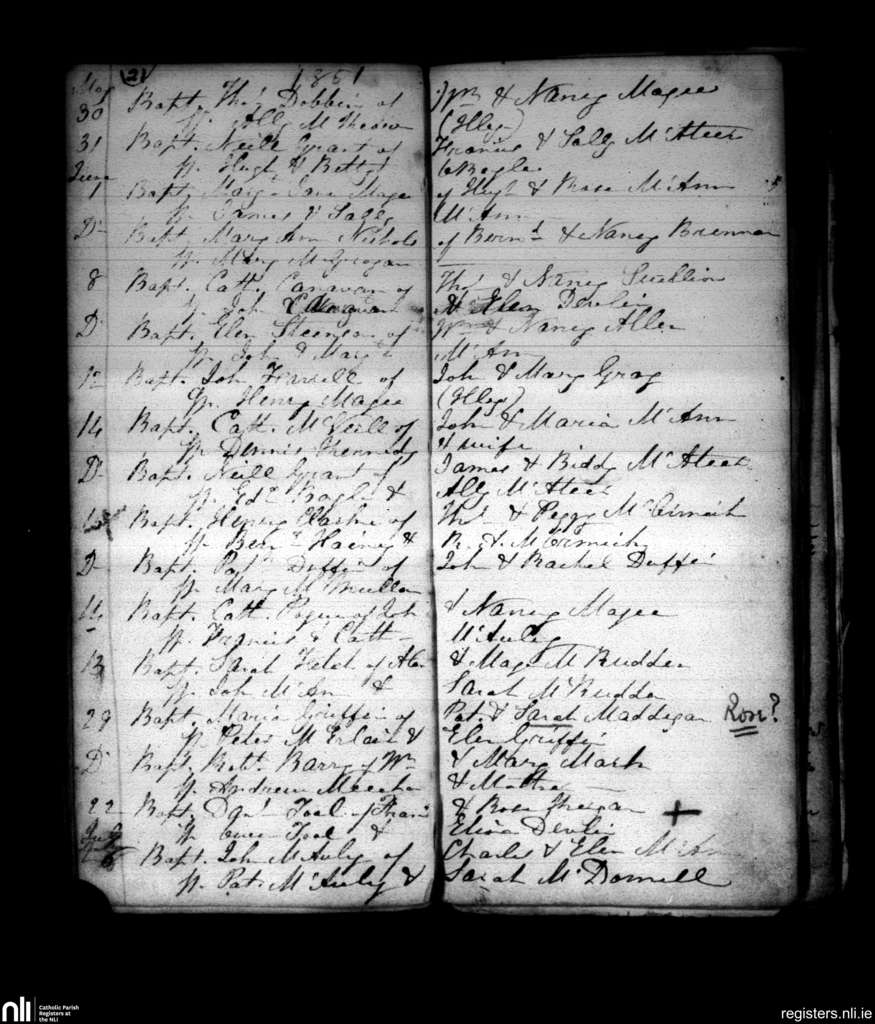 (21 1851
May
30 Bapt. Thos Dobbin of Jas & Nancy Magee
Sp. Ally M (Illeg)
31 Bapt. Neill Grant of Francis & Sally McAteer
Sp. Hugh & Betty O'Boyle
June
1 Bapt. Margt Jane Magee of Hugh & Rose McAnn
Sp. James & Sally McAnn
Do Bapt. Mary Ann Nichols of Bernd & Nancy Brennan
Sp. Mary McGrogan
8 Bapt. Cath. Canavan of Thos & Nancy
Sp. Joh & Elen Devlin
Do Bapt. Elen Steenson of & Nancy Allen
Sp. John & Mary McAnn
12 Bapt. Joh. Farrell of Joh & Mary Gray
Sp. Henry Magee (Illeg)
14 Bapt. Cath. McNeill of John & Maria McAnn
Sp. Dennis Kennedy & wife
Do Bapt. Neill Grant of James & Biddy McAteer
Sp. Edd Boyle & Ally McAteer
Bapt. Henry of Thos & Peggy McCormick
Sp. Bernd & R. McCormick
Do Bapt. Patk Duffin of John & Rachel Duffin
Sp. Mary McMullen
14 Bapt. Cath. Pogue of Joh & Nancy Magee
Sp. Francis & Cath McAuley
13 Bapt. Sarah of Alex & Magt McRudden
Sp. Joh McAn & Sarah McRudden
29 Bapt. Maria Griffin of Pat. & Sarah Maddigan Rose?
Sp. Peter McErlain & Elen Griffin
Do Bapt. Robt. Barry of Wm & Mary Mark
Sp. Andrew Meechan &
22 Bapt. Danl Tool of Francis & Rose +
Sp. Owen Tool & Eliza Devlin
July
6 Bapt. Joh McAuly of Charles & Elen McAnn
Sp. Pat. McAuly & Sarah McDonnell
nli Catholic Parish
Registers at
the NLI
registers.nli.ie